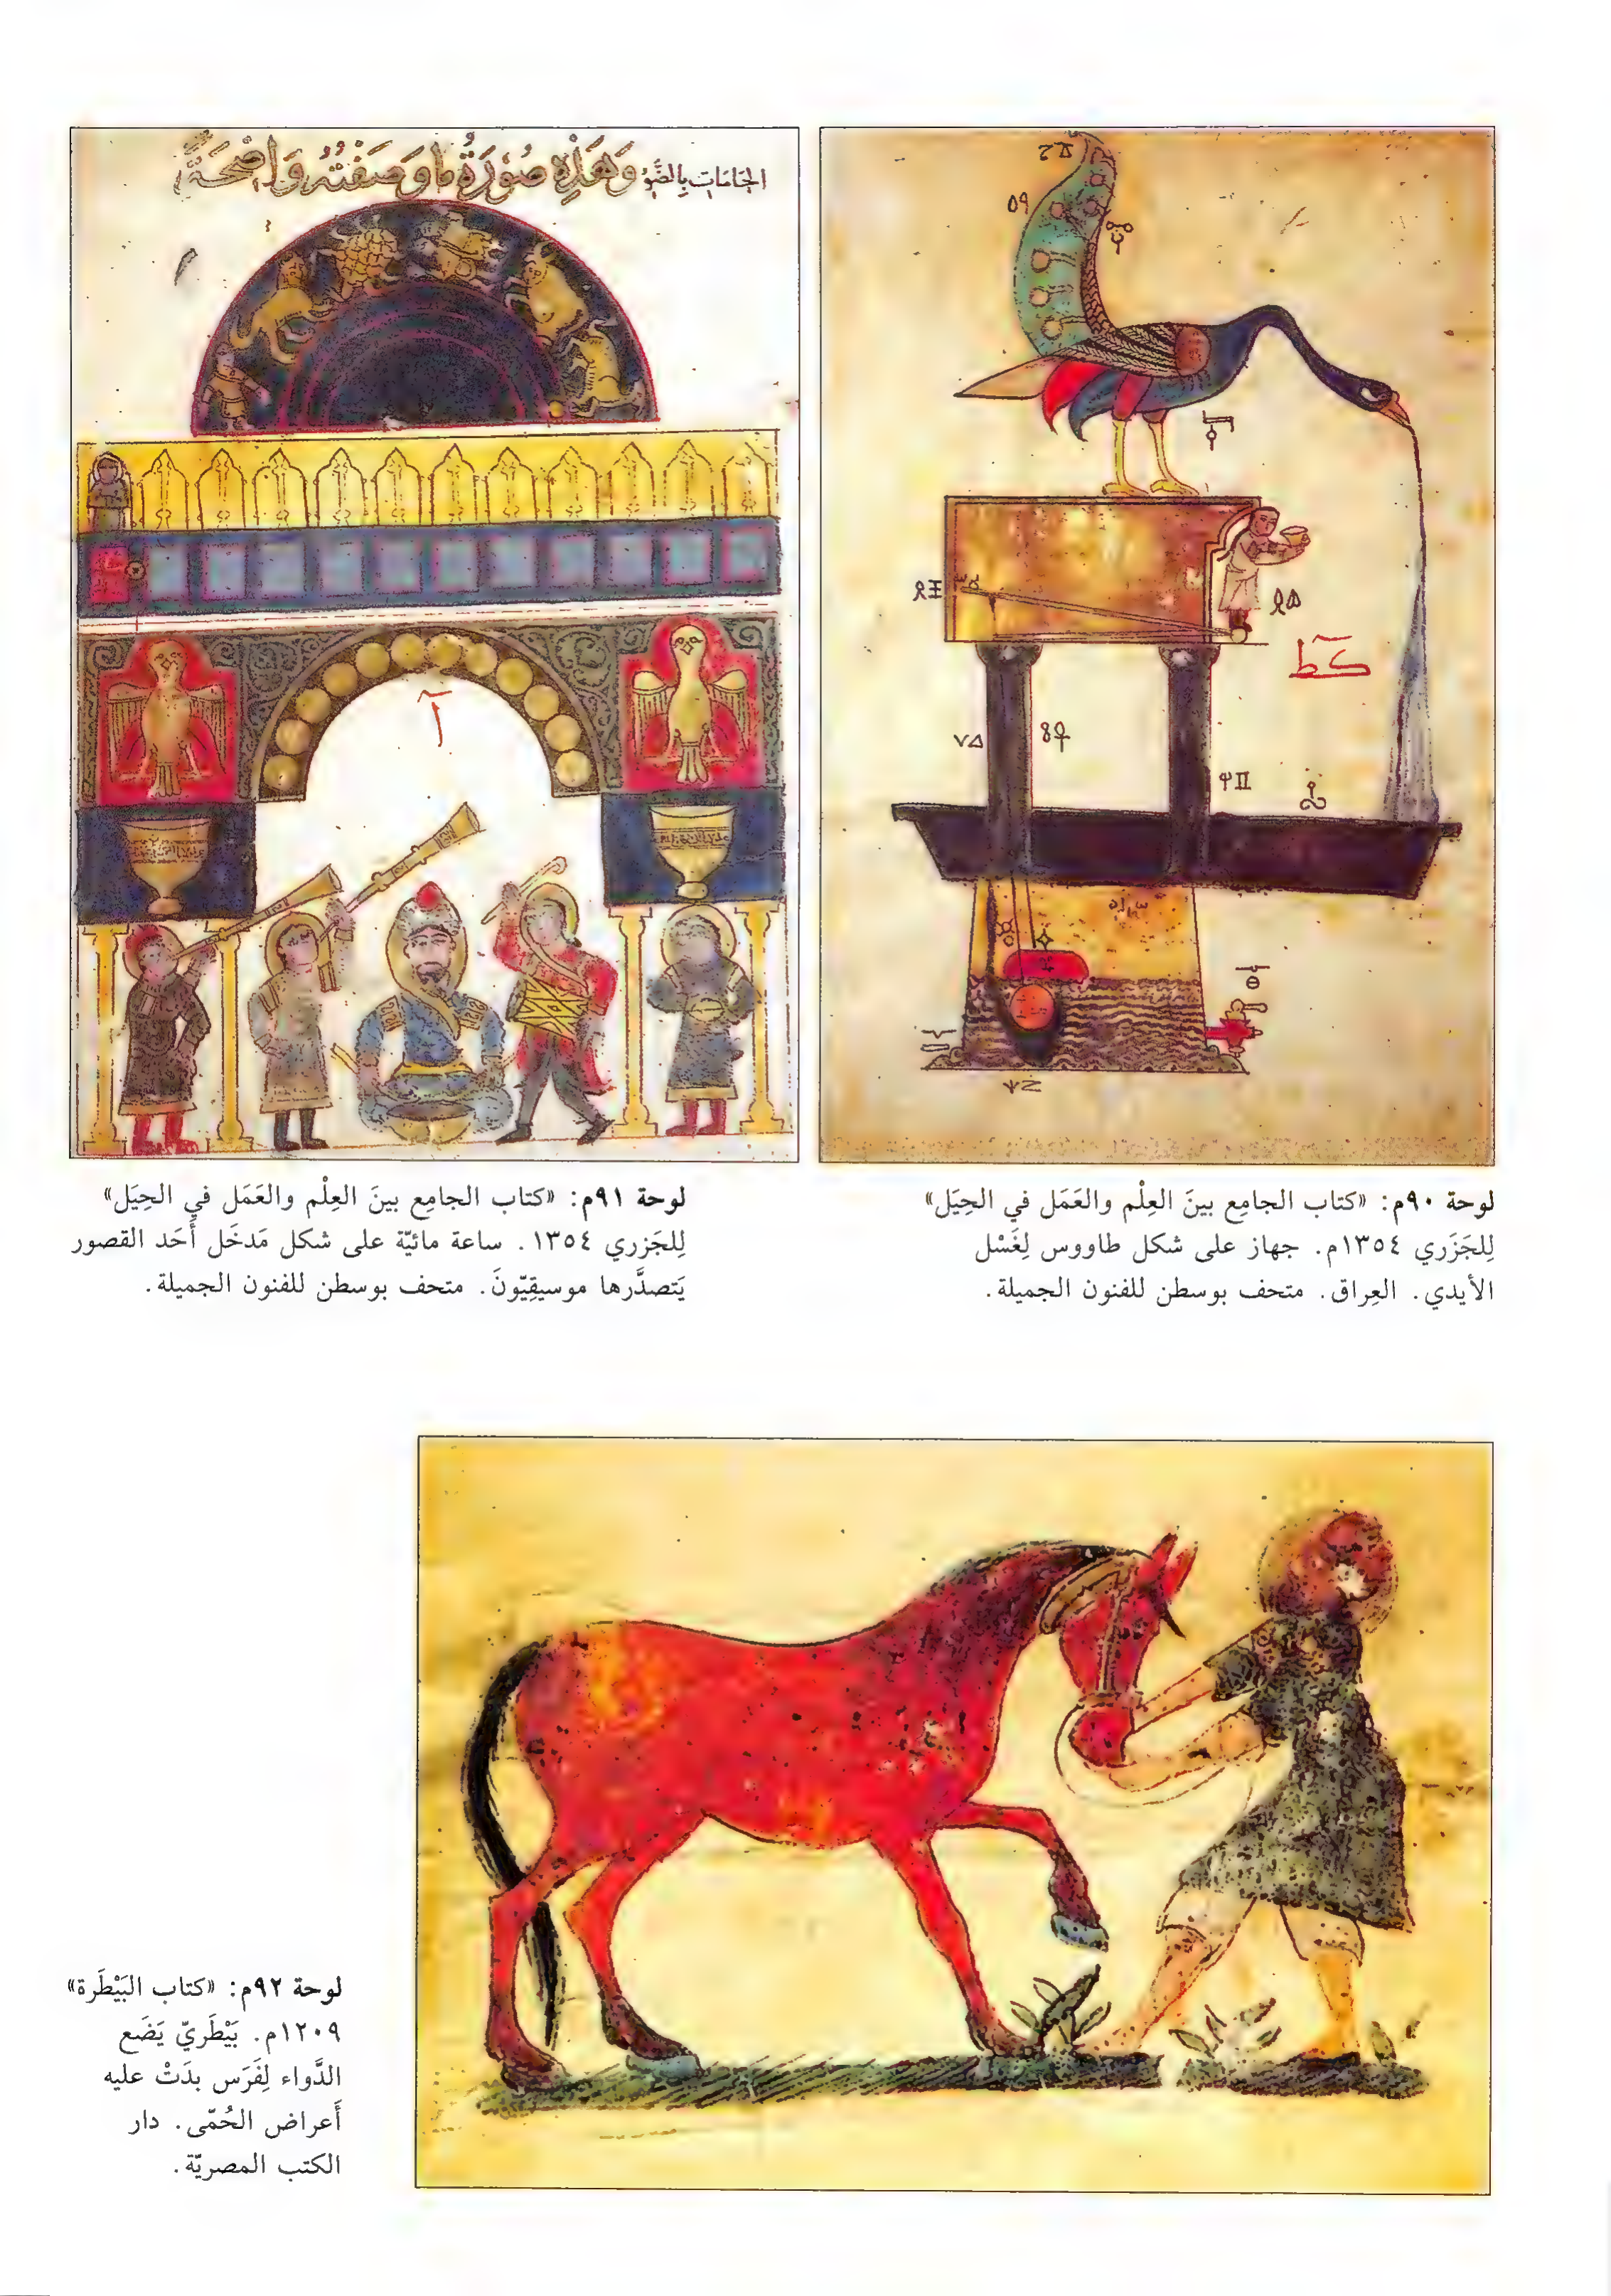 الجامات بالضو وَهَذِهِ صُوْرَةُ مَا وَصَفْتُهُ وَاضِحَةً
كط
لوحة ٩٠م: «كتاب الجامِع بينَ العِلْم والعَمَل في الحِيَل»
لِلجَزَري ١٣٥٤م. جهاز على شكل طاووس لِغَسْل
الأيدي. العِراق. متحف بوسطن للفنون الجميلة.
لوحة ٩١م: «كتاب الجامِع بينَ العِلْم والعَمَل في الحِيَل»
لِلجَزري ١٣٥٤. ساعة مائيّة على شكل مَدخَل أَحَد القصور
يَتصدَّرها موسيقِيّونَ. متحف بوسطن للفنون الجميلة.
لوحة ٩٢م: «كتاب البَيْطَرة»
١٢٠٩م. بَيْطَريّ يَضَع
الدَّواء لِفَرَس بدَتْ عليه
أَعراض الحُمّى. دار
الكتب المصريّة.